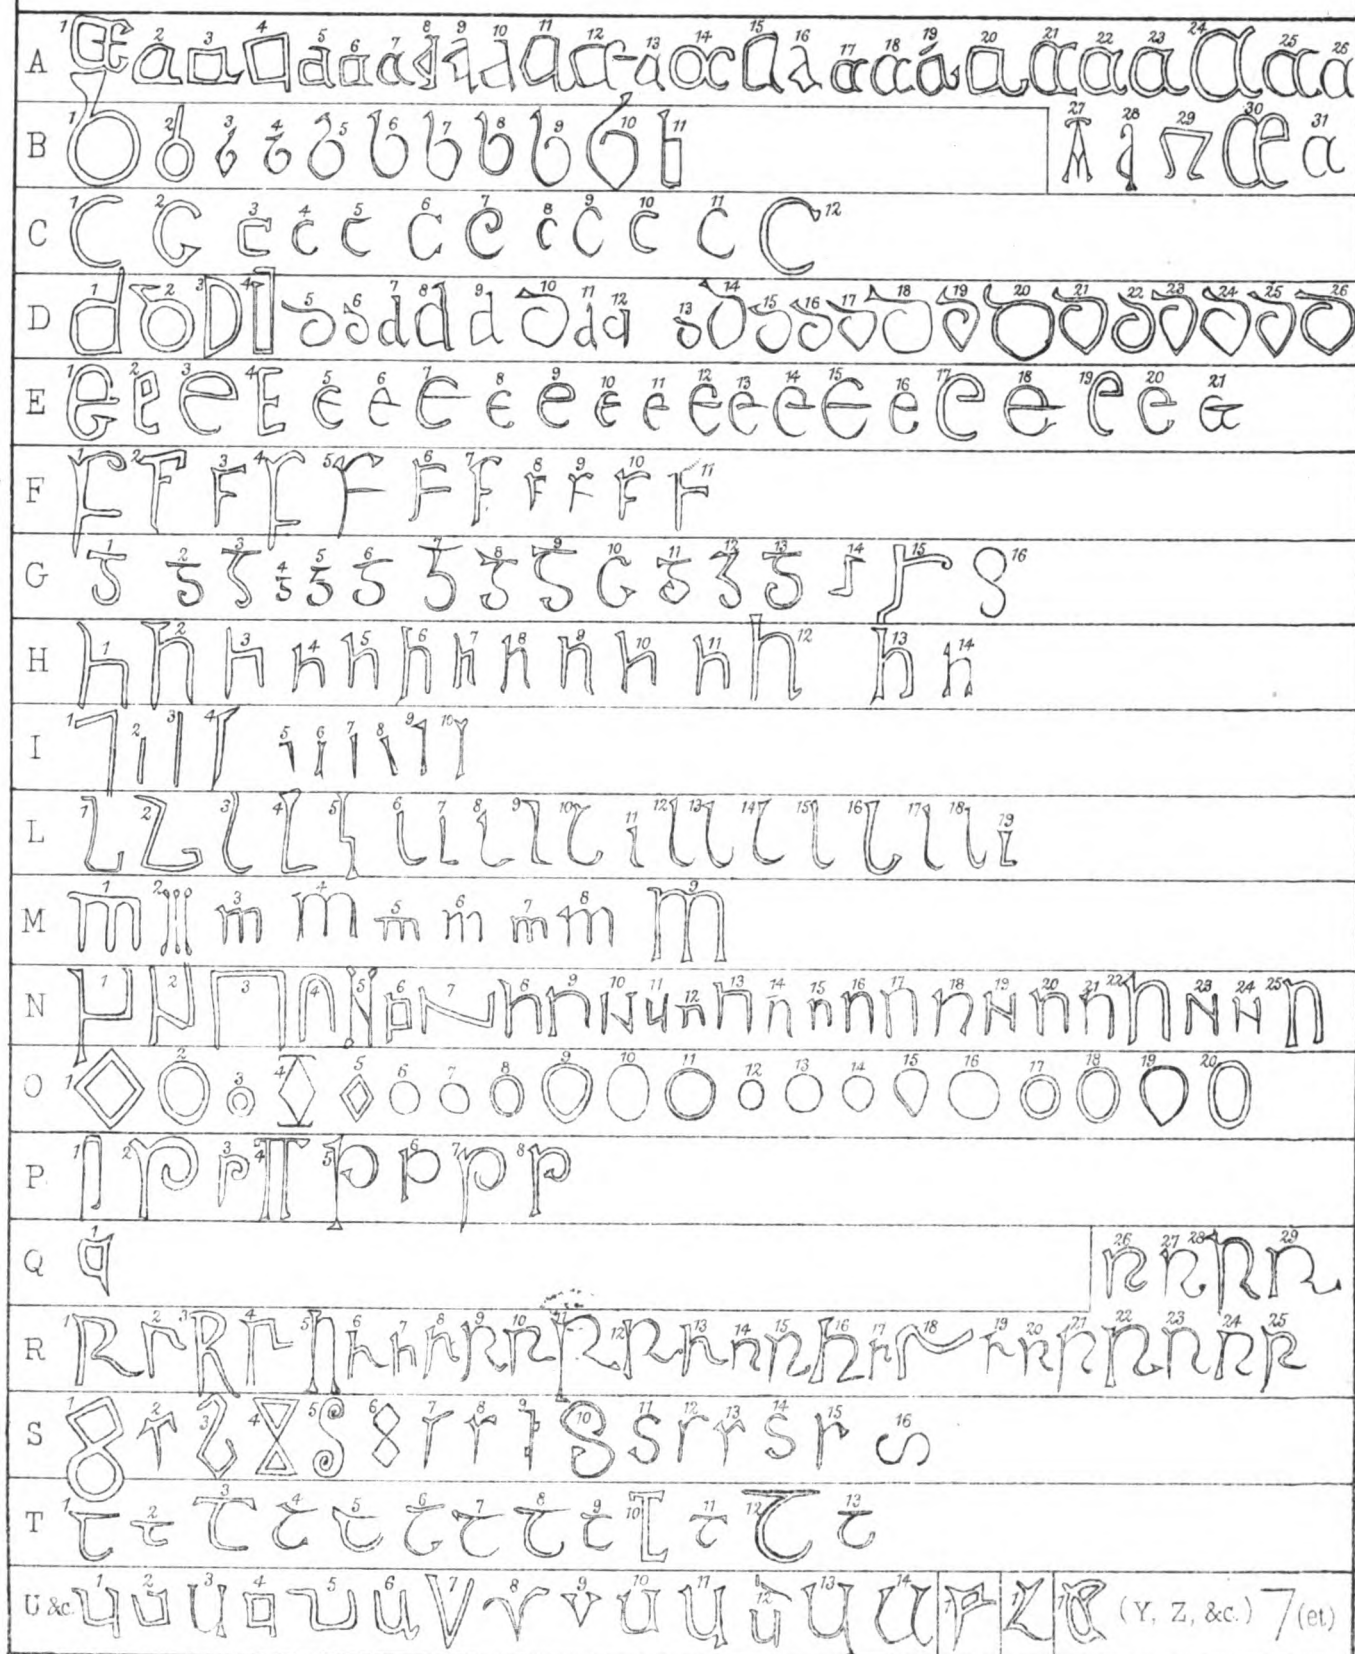 A 1 2 3 4 5 6 7 8 9 10 11 12 13 14 15 16 17 18 19 20 21 22 23 24 25 26
B 1 2 3 4 5 6 7 8 9 10 11 27 28 29 30 31
C 1 2 3 4 5 6 7 8 9 10 11 12
D 1 2 3 4 5 6 7 8 9 10 11 12 13 14 15 16 17 18 19 20 21 22 23 24 25 26
E 1 2 3 4 5 6 7 8 9 10 11 12 13 14 15 16 17 18 19 20 21
F 1 2 3 4 5 6 7 8 9 10 11
G 1 2 3 4 5 6 7 8 9 10 11 12 13 14 15 16
H 1 2 3 4 5 6 7 8 9 10 11 12 13 14
I 1 2 3 4 5 6 7 8 9 10
L 1 2 3 4 5 6 7 8 9 10 11 12 13 14 15 16 17 18 19
M 1 2 3 4 5 6 7 8 9
N 1 2 3 4 5 6 7 8 9 10 11 12 13 14 15 16 17 18 19 20 21 22 23 24 25
O 1 2 3 4 5 6 7 8 9 10 11 12 13 14 15 16 17 18 19 20
P 1 2 3 4 5 6 7 8
Q 1 26 27 28 29
R 1 2 3 4 5 6 7 8 9 10 11 12 13 14 15 16 17 18 19 20 21 22 23 24 25
S 1 2 3 4 5 6 7 8 9 10 11 12 13 14 15 16
T 1 2 3 4 5 6 7 8 9 10 11 12 13
U &c. 1 2 3 4 5 6 7 8 9 10 11 12 13 14 1 1 1 (Y, Z, &c.) 7 (et)